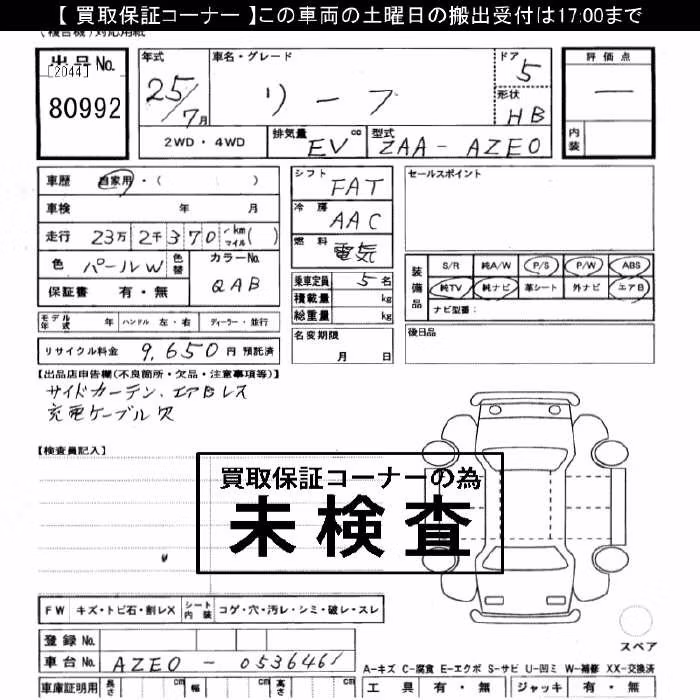 【 買取保証コーナー 】この車両の土曜日の搬出受付は17:00まで
(複合機)対応用紙
出品No.
[2044]
80992
年式
25/7月
車名・グレード
リーフ
ドア
5
形状
HB
評価点
—
内装
2WD・4WD
排気量
EV cc
型式
ZAA-AZE0
車歴 自家用・( )
車検 年 月
走行 23万 2千 3 7 0 km マイル( )
色 パールW 色替
カラーNo.
QAB
保証書 有・無
シフト
FAT
冷房
AAC
燃料
電気
乗車定員 5名
積載量 kg
総重量 kg
セールスポイント
装備品
S/R 純A/W P/S P/W ABS
純TV 純ナビ 革シート 外ナビ エアB
ナビ型番:
モデル年式 年 ハンドル 左・右 ディーラー・並行
名変期限
月 日
後日品
リサイクル料金 9,650 円 預託済
【出品店申告欄(不良箇所・欠品・注意事項等)】
サイドカーテン、エアBレス
充電ケーブル欠
【検査員記入】
買取保証コーナーの為
未検査
FW キズ・トビ石・割レX シート内装 コゲ・穴・汚レ・シミ・破レ・スレ
登録No.
車台No. AZE0-0536461
スペア
A-キズ C-腐食 E-エクボ S-サビ U-凹ミ W-補修 XX-交換済
車庫証明用 長さ cm 幅 cm 高さ cm
工具 有・無 ジャッキ 有・無